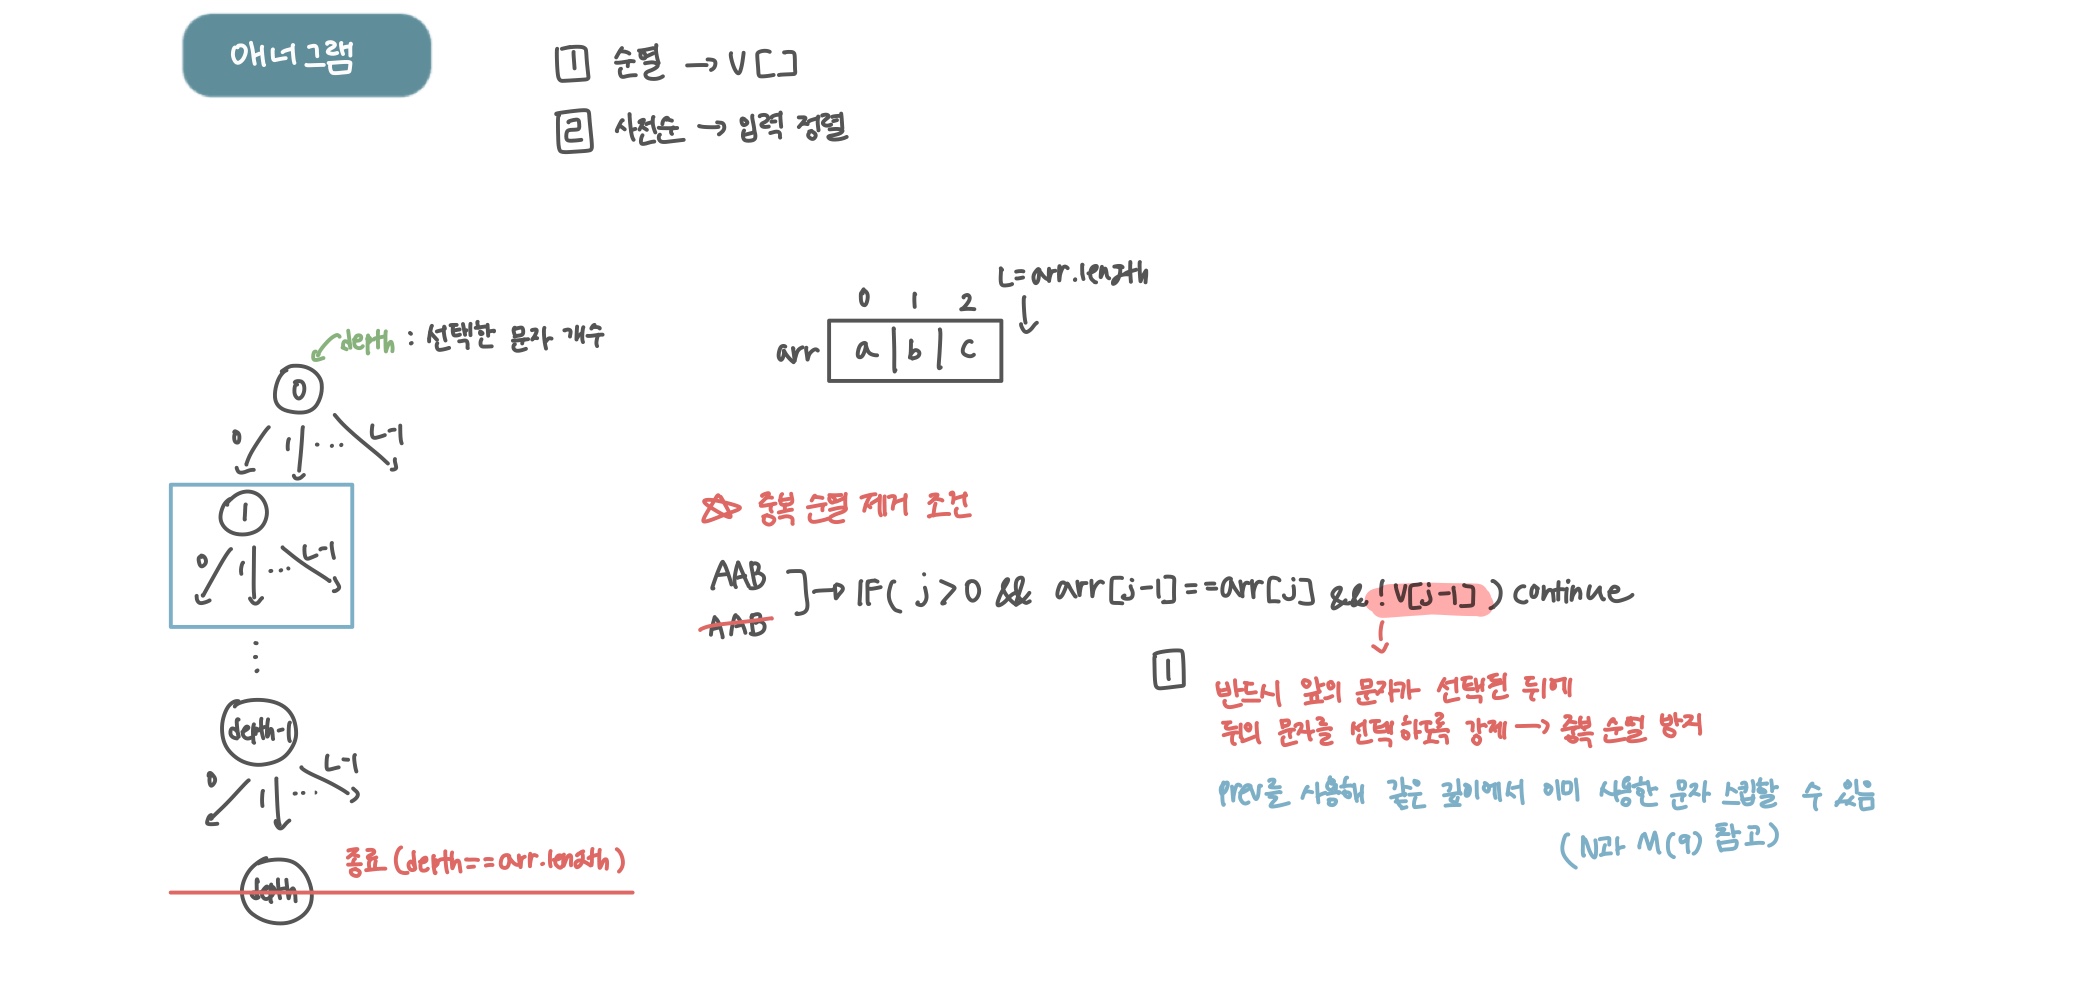 애너그램
1 순열 → V[]
2 사전순 → 입력 정렬
L=arr.length
0 1 2
arr a b c
depth : 선택한 문자 개수
0
0 1 ... L-1
1
0 1 ... L-1
depth-1
0 1 ... L-1
종료(depth==arr.length)
depth
☆ 중복 순열 제거 조건
AAB
AAB
→ IF( j>0 && arr[j-1]==arr[j] && !V[j-1]) continue
1
반드시 앞의 문자가 선택된 뒤에
뒤의 문자를 선택하도록 강제 → 중복 순열 방지
prev를 사용해 같은 깊이에서 이미 사용한 문자 스킵할 수 있음
(N과 M(9) 참고)